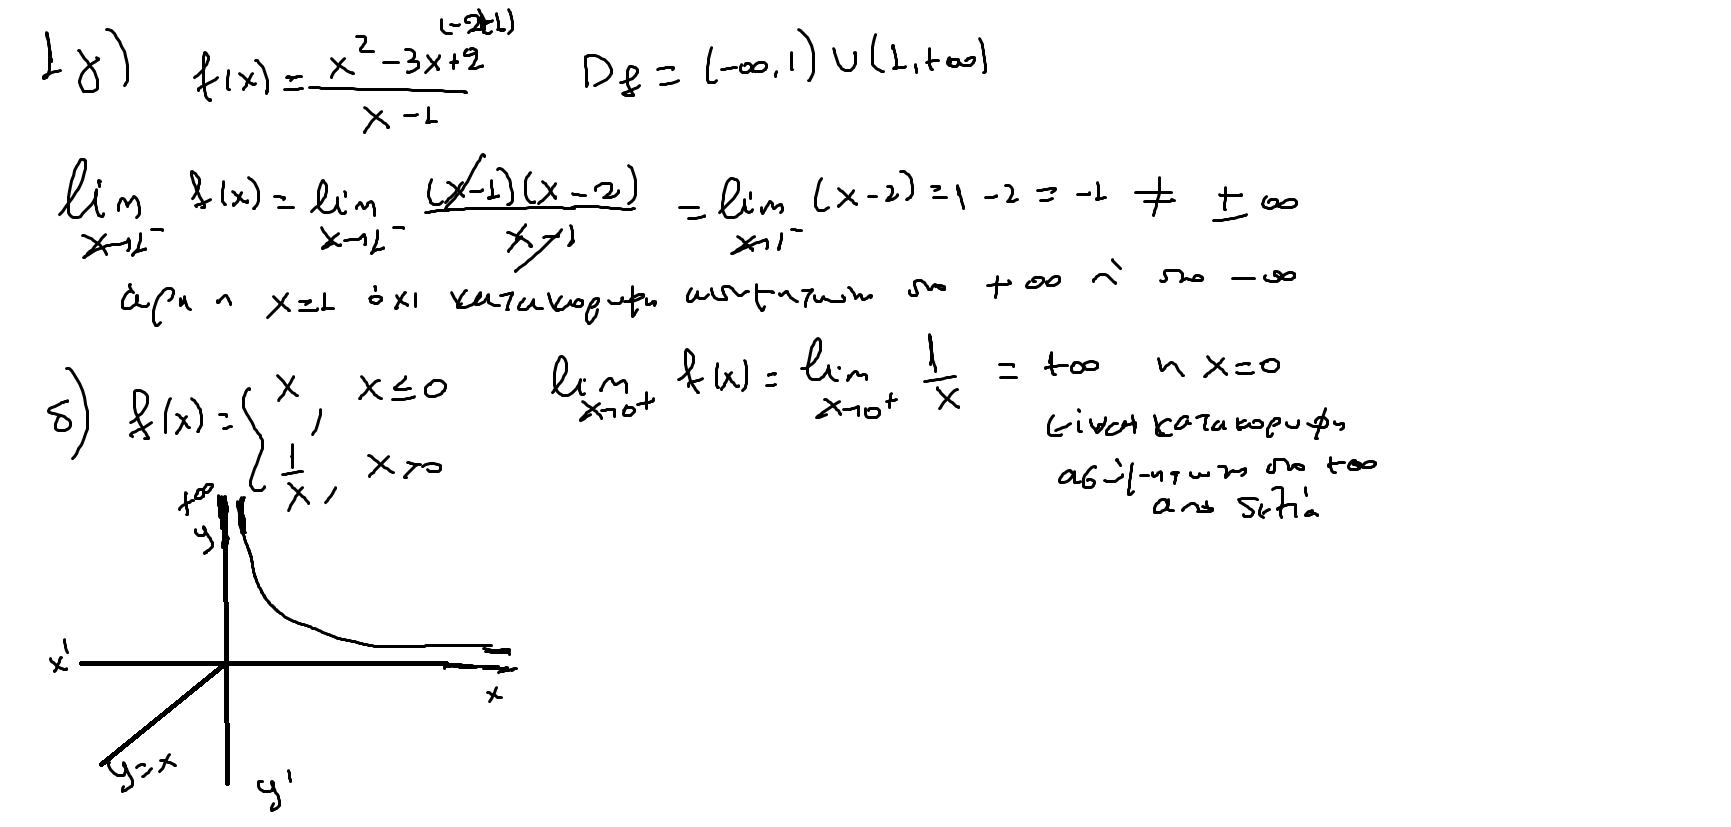 (-2)(-1)
1γ) f(x) = \frac{x^2-3x+2}{x-1} D_f = (-∞,1)∪(1,+∞)
lim_{x→1^-} f(x) = lim_{x→1^-} \frac{(x-1)(x-2)}{x-1} = lim_{x→1^-} (x-2) = 1-2 = -1 ≠ ±∞
άρα η x=1 όχι κατακορυφη ασυμπτωτη στο +∞ ή στο -∞
δ) f(x) = { x, x≤0 lim_{x→0^+} f(x) = lim_{x→0^+} \frac{1}{x} = +∞ η x=0
\frac{1}{x}, x>0 είναι κατακορυφη
ασύμπτωτη στο +∞
απο δεξιά
+∞
y
x'
x
y=x
y'